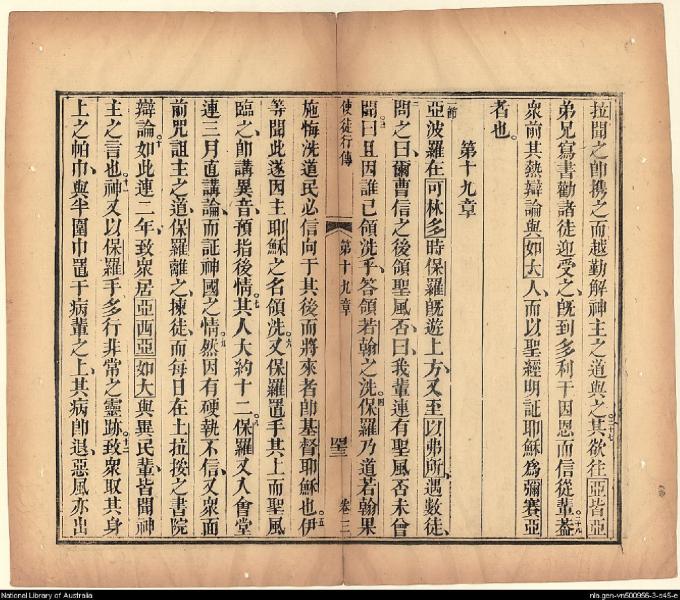 拉聞之即攜之而越勤解神主之道與之其欲往亞皆亞
弟兄寫書勸諸徒迎受之既到多利于因恩而信從輩蓋
衆前其熱辯論與如大人而以聖經明証耶穌爲彌賽亞
者也
第十九章
亞波羅在可林多時保羅既遊上方又至以弗所遇數徒
問之曰爾曹信之後領聖風否曰我輩連有聖風否未曾
聞曰且因誰已領洗乎答領若翰之洗保羅乃道若翰果
使徒行傳 第十九章 卷三
施悔洗道民必信向于其後而將來者即基督耶穌也伊
等聞此遂因主耶穌之名領洗又保羅置手其上而聖風
臨之即講異音預指後情其人大約十二保羅又入會堂
連三月直講論而証神國之情然因有硬執不信又衆面
前咒詛主之道保羅離之揀徒而每日在土拉挼之書院
辯論如此連二年致衆居亞西亞如大與異民輩皆聞神
主之言也神又以保羅手多行非常之靈跡致衆取其身
上之帕巾與半圍巾置于病輩之上其病即退惡風亦出
National Library of Australia
nla.gen-vn500956-3-s45-e